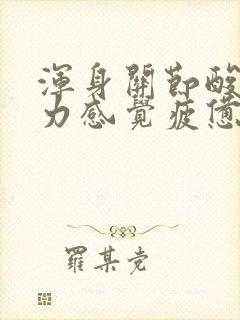 渾身關節酸
力感覺疲憊
羅某党